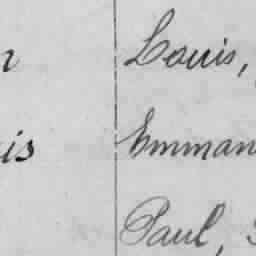 Louis,
is Emman
Paul,